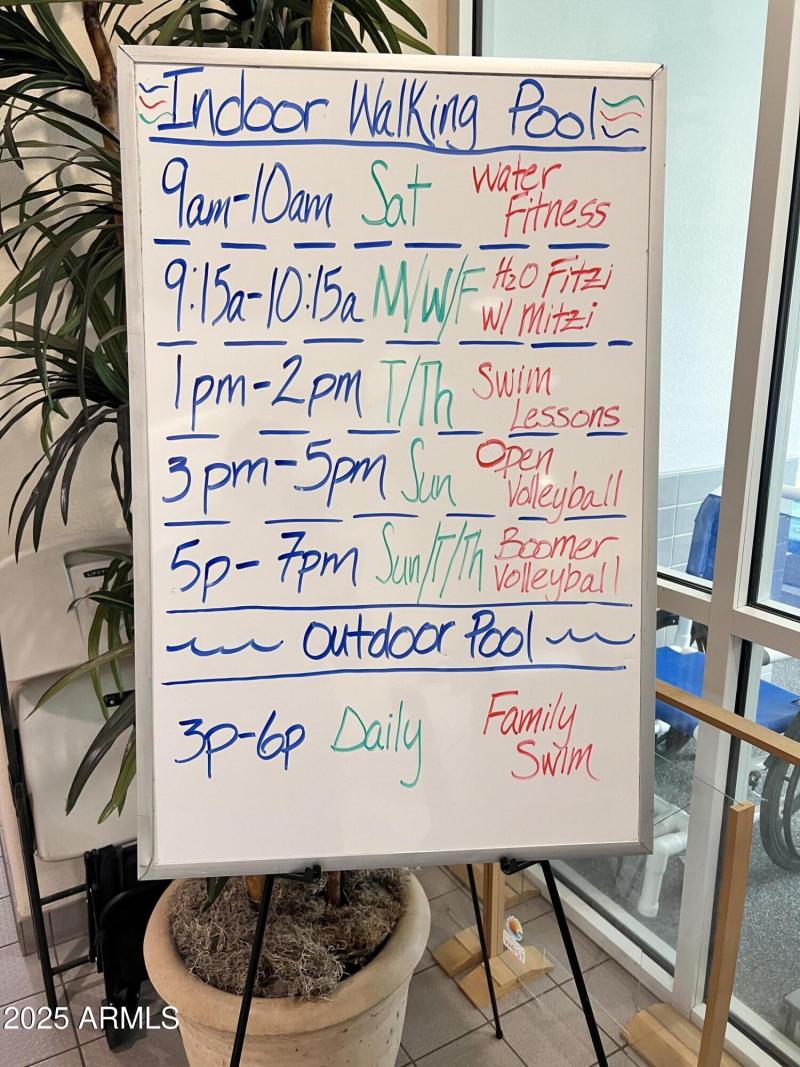 Indoor Walking Pool
9am-10am Sat Water Fitness
9:15a-10:15a M/W/F H2O Fitzi w/ Mitzi
1pm-2pm T/Th Swim Lessons
3pm-5pm Sun Open Volleyball
5p-7pm Sun/T/Th Boomer Volleyball
Outdoor Pool
3p-6p Daily Family Swim
2025 ARMLS